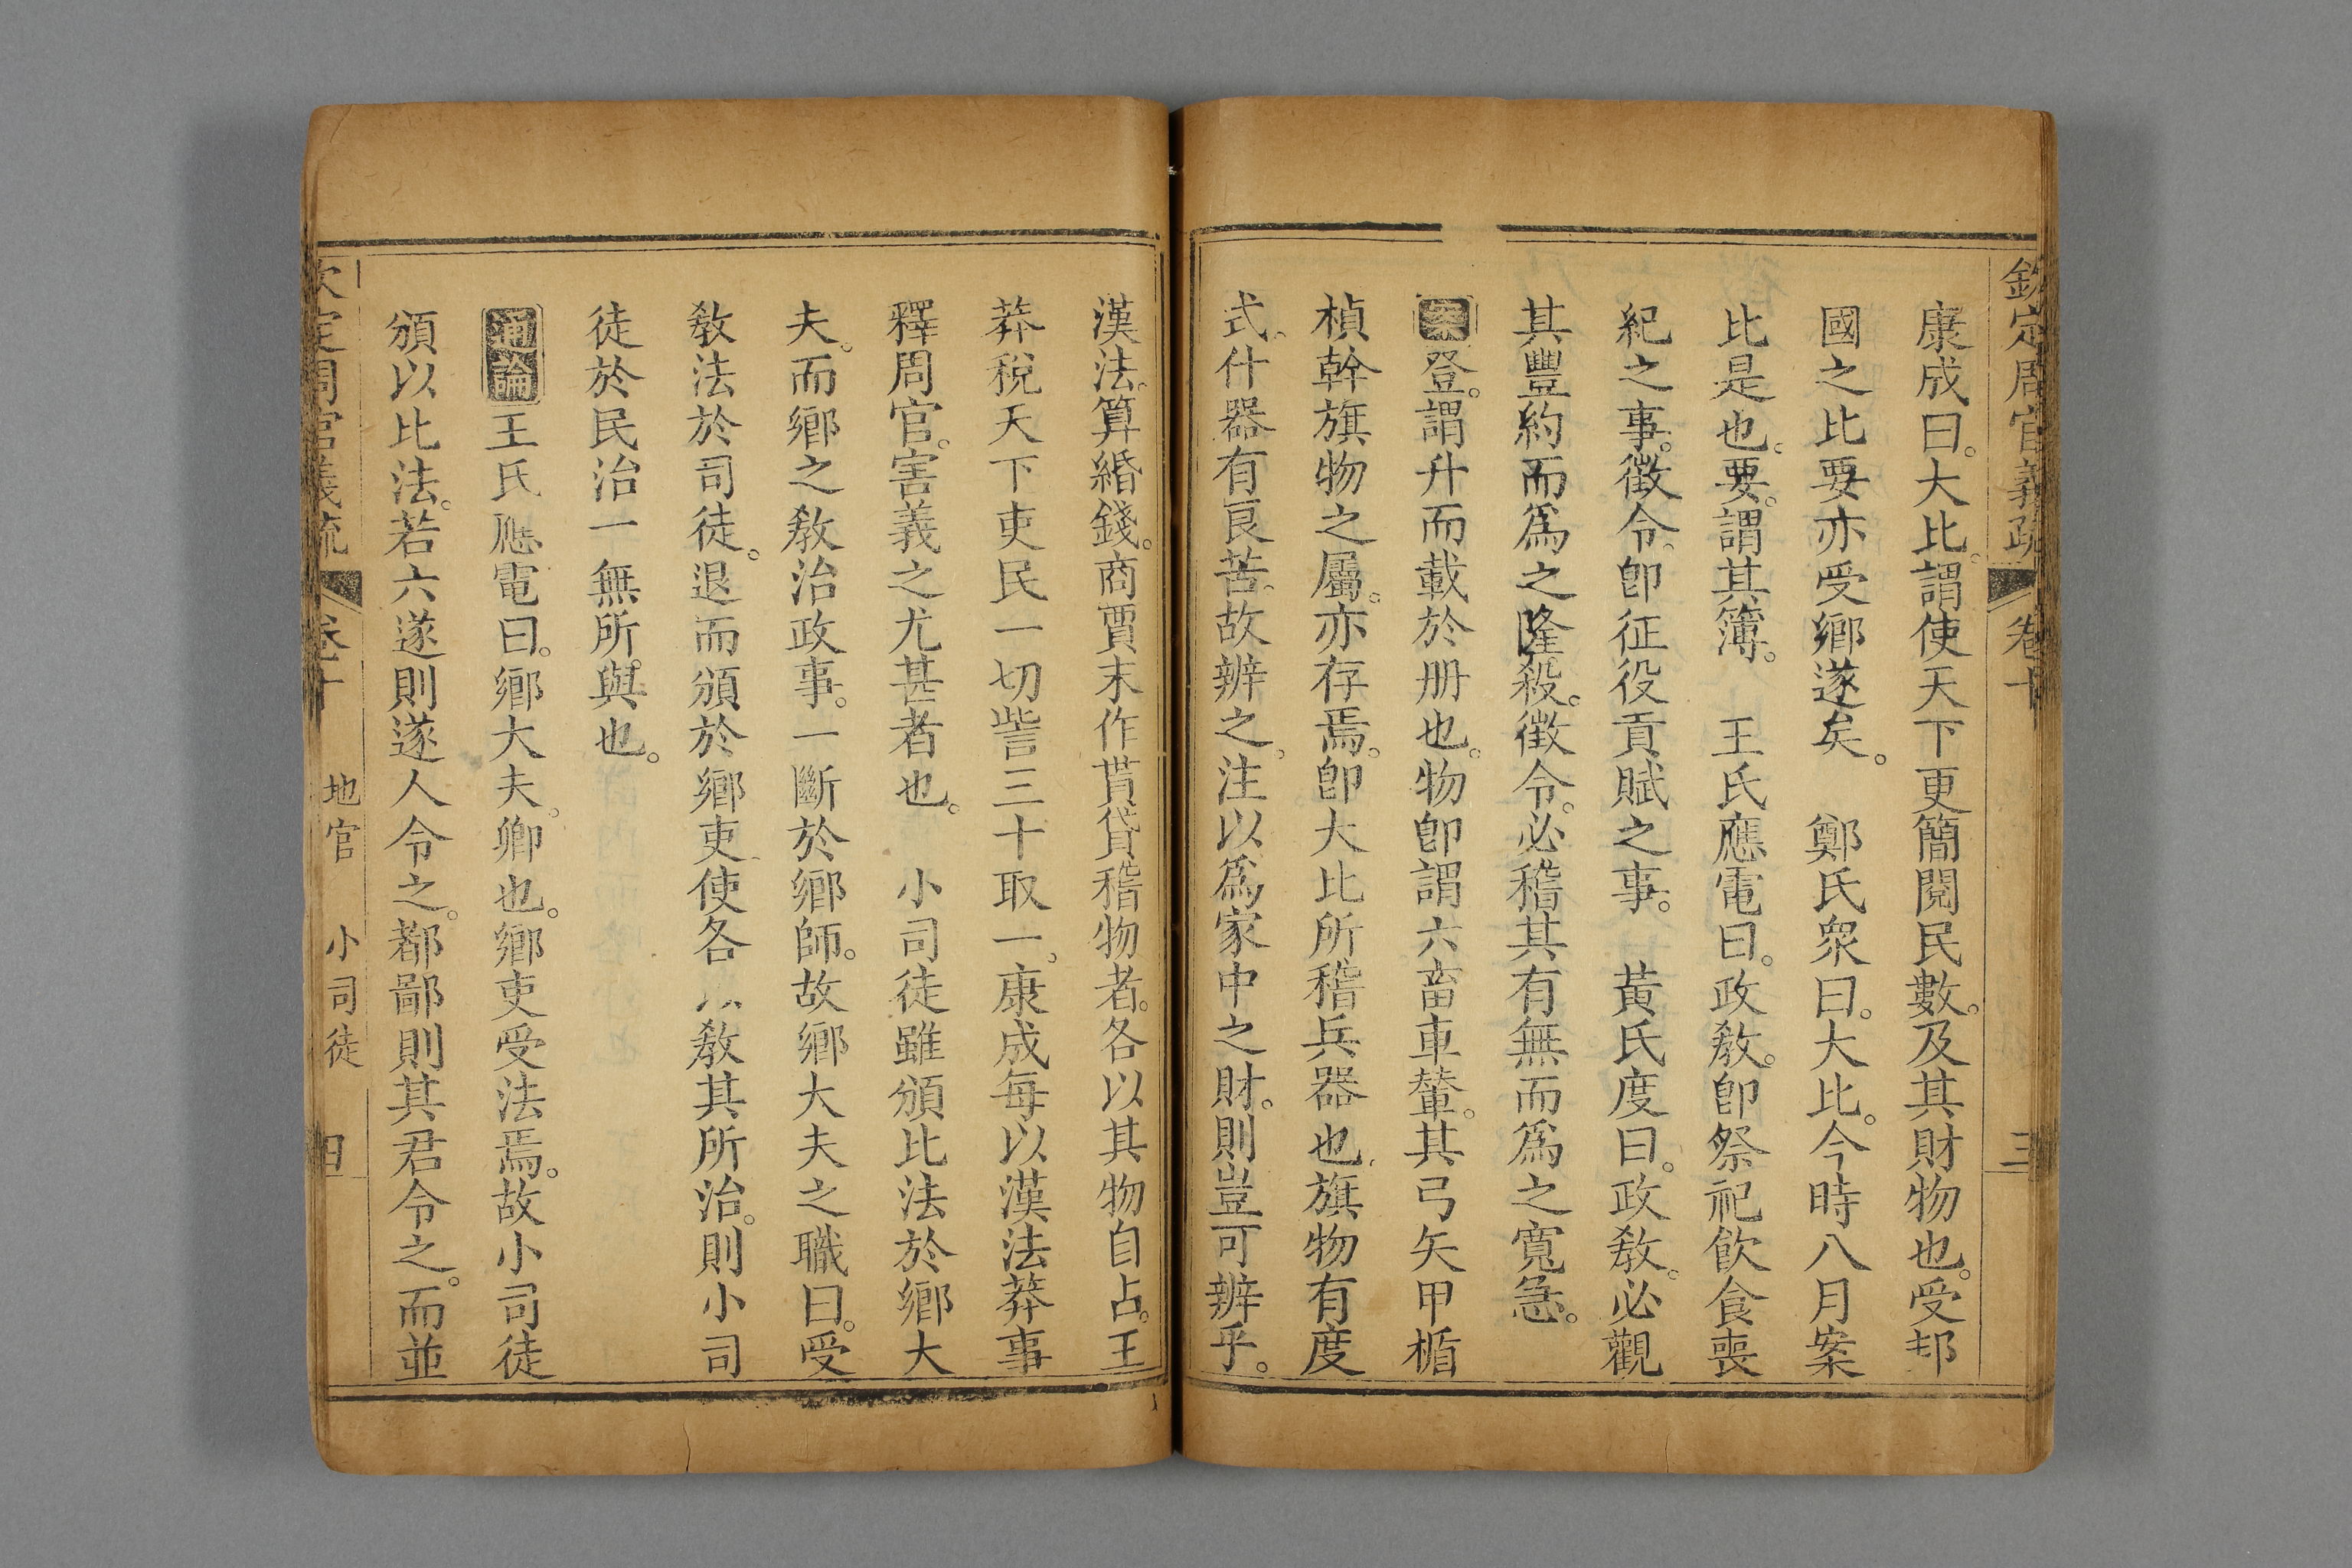 欽定周官義疏 卷十 三
康成曰。大比。謂使天下更簡閱民數。及其財物也。受邦
國之比要亦受鄉遂矣。 鄭氏眾曰。大比。今時八月案
比是也。要。謂其簿。 王氏應電曰。政敎。卽祭祀飮食喪
紀之事。徵令。卽征役貢賦之事。 黃氏度曰。政敎。必觀
其豐約而爲之隆殺。徵令。必稽其有無而爲之寬急。
案登。謂升而載於册也。物卽謂六畜車輦。其弓矢甲楯
楨幹旗物之屬。亦存焉。卽大比所稽兵器也。旗物有度
式。什器有良苦。故辨之。注以爲家中之財。則豈可辨乎。
漢法。算緡錢。商賈末作貰貸稽物者。各以其物自占。王
莽稅天下吏民一切訾三十取一。康成每以漢法莽事
釋周官。害義之尤甚者也。 小司徒雖頒比法於鄉大
夫。而鄉之敎治政事。一斷於鄉師。故鄉大夫之職曰。受
敎法於司徒。退而頒於鄉吏使各以敎其所治。則小司
徒於民治一無所與也。
通論王氏應電曰。鄉大夫。卿也。鄉吏受法焉。故小司徒
頒以比法。若六遂則遂人令之。都鄙則其君令之。而並
欽定周官義疏 卷十 地官 小司徒 四